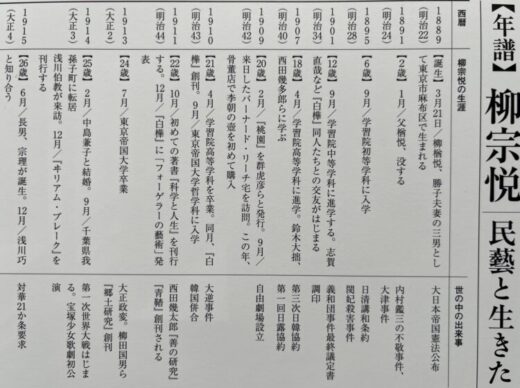 【年譜】 柳宗悦 民藝と生きた
西暦
柳宗悦の生涯
世の中の出来事
1889
(明治22)
【誕生】 3月21日／柳楢悦、勝子夫妻の三男とし
て東京市麻布区で生まれる
大日本帝国憲法公布
1891
(明治24)
【2歳】 1月／父楢悦、没する
内村鑑三の不敬事件、
大津事件
1895
(明治28)
【6歳】 9月／学習院初等学科に入学
日清講和条約
閔妃殺害事件
1901
(明治34)
【12歳】 9月／学習院中等学科に進学する。志賀
直哉など『白樺』同人たちとの交友がはじまる
義和団事件最終議定書
調印
1907
(明治40)
【18歳】 4月／学習院高等学科に進学。鈴木大拙、
西田幾多郎らに学ぶ
第三次日韓協約
第一回日露協約
1909
(明治42)
【20歳】 2月／『桃園』を群虎彦らと発行。9月／
来日したバーナード・リーチ宅を訪問。この年、
骨董店で李朝の壺を初めて購入
自由劇場設立
1910
(明治43)
【21歳】 4月／学習院高等学科を卒業。同月、『白
樺』創刊。9月／東京帝国大学哲学科に入学
大逆事件
韓国併合
1911
(明治44)
【22歳】 10月／初めての著書『科学と人生』を刊行
する。12月／『白樺』に「フォーゲラーの藝術」発
表
西田幾太郎『善の研究』
『青鞜』創刊される
1913
(大正2)
【24歳】 7月／東京帝国大学卒業
大正政変。柳田国男ら
『郷土研究』創刊
1914
(大正3)
【25歳】 2月／中島兼子と結婚。9月／千葉県我
孫子町に転居
浅川伯教が来訪。12月／『ヰリアム・ブレーク』を
刊行する
第一次世界大戦はじま
る。宝塚少女歌劇初公
演
1915
(大正4)
【26歳】 6月／長男、宗理が誕生。12月／浅川巧
と知り合う
対華21か条要求